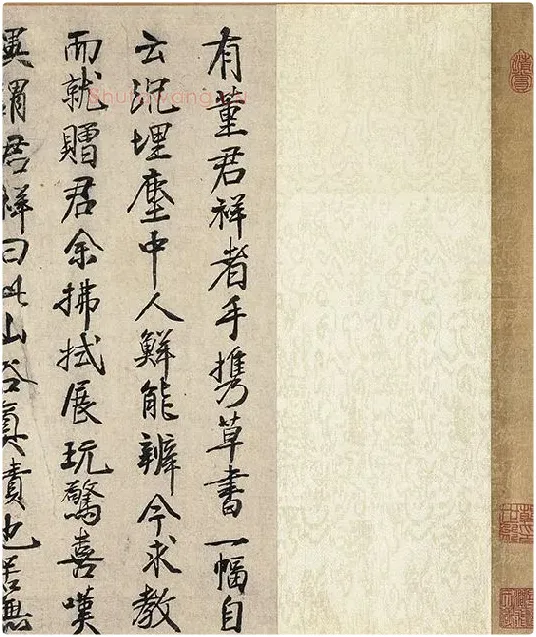 有董君祥者手携草書一幅自
云沉埋塵中人鮮能辨今求教
而就贈君余拂拭展玩驚喜嘆
異謂君祥曰此山谷真蹟也若無